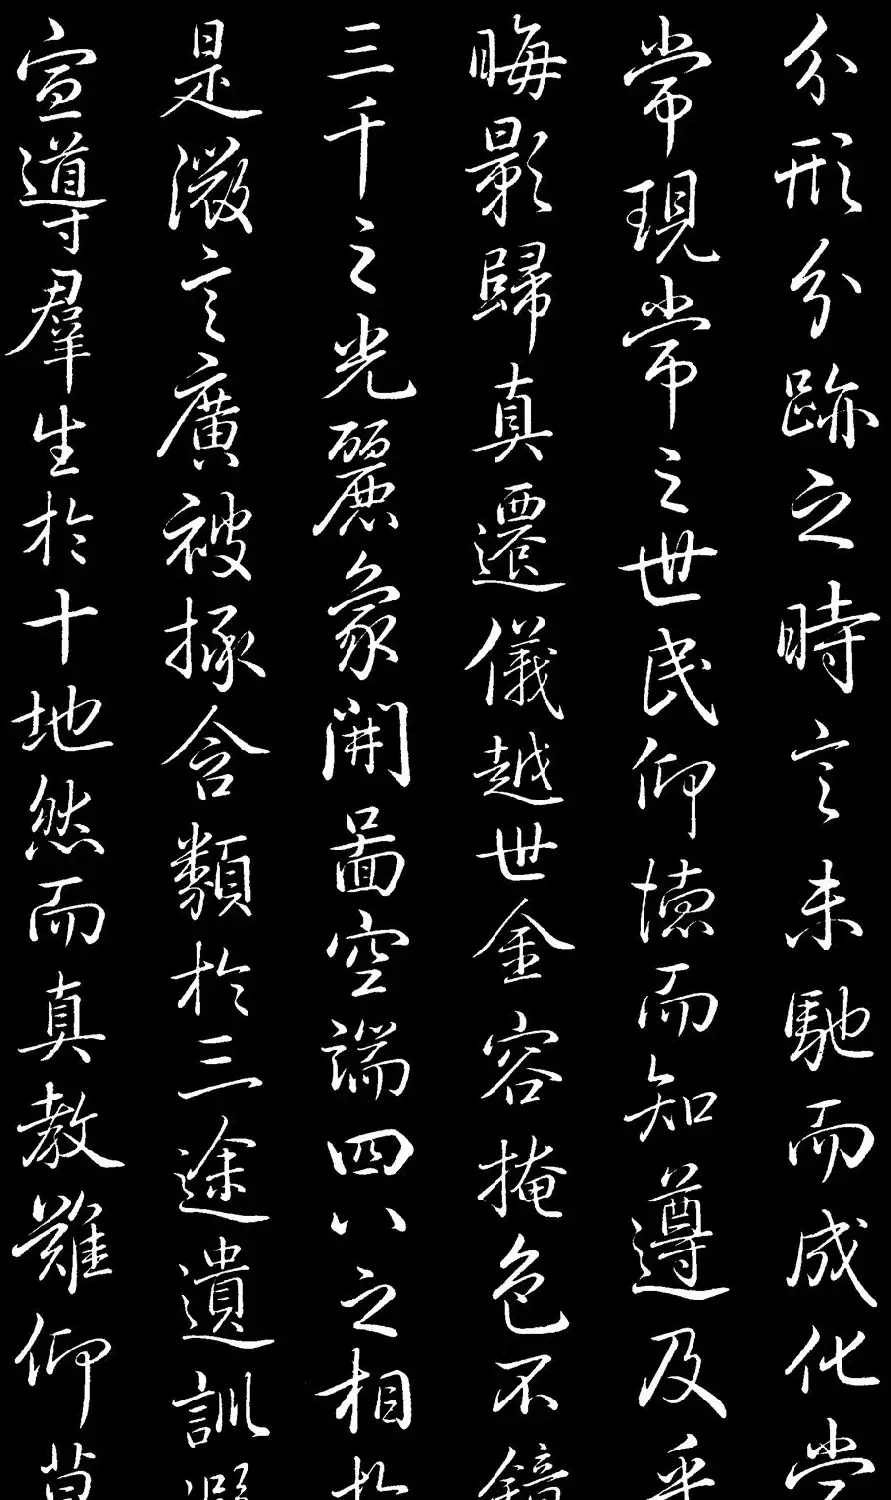 分形分跡之時言未馳而成化當
常現常之世民仰德而知遵及乎
晦影歸真遷儀越世金容掩色不鏡
三千之光麗象開啚空端四八之相於
是微言廣被拯含類於三途遺訓遐
宣導群生於十地然而真教難仰莫